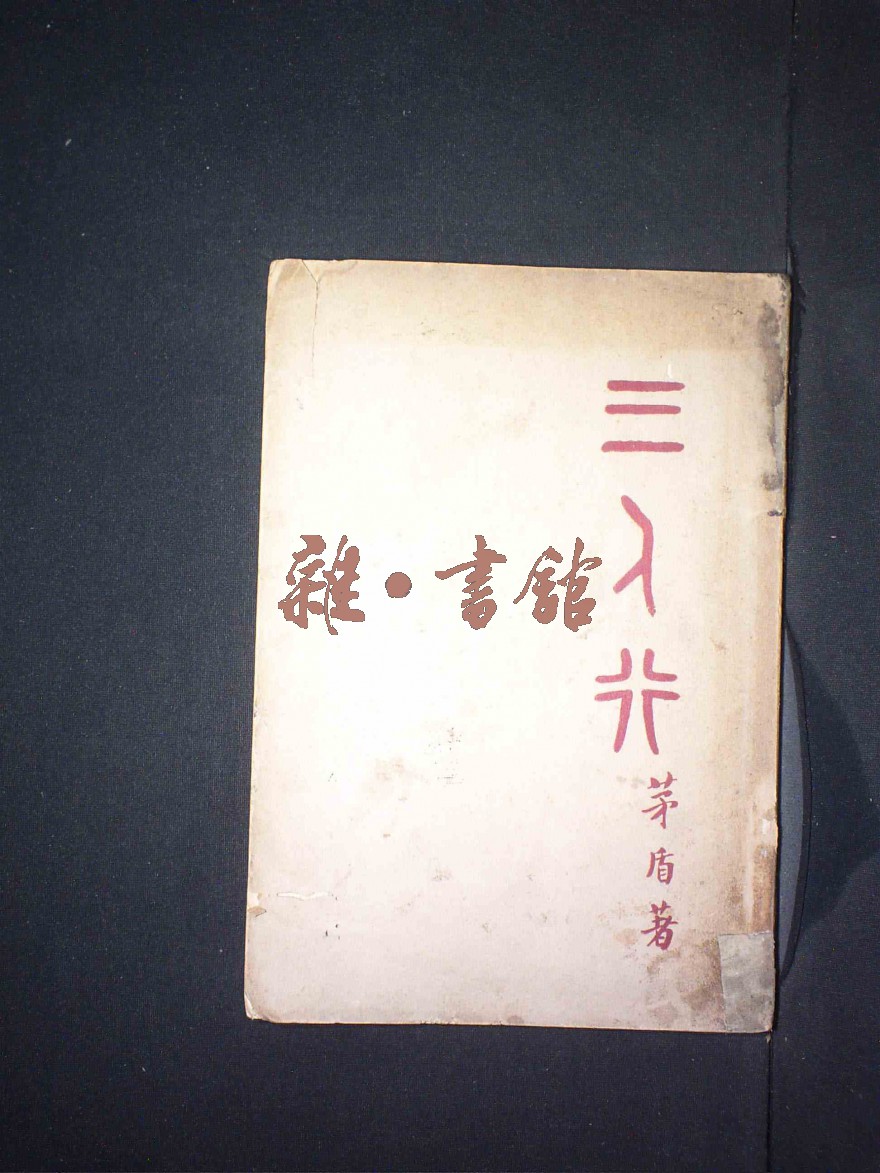 三人行
茅盾著
雜·書館